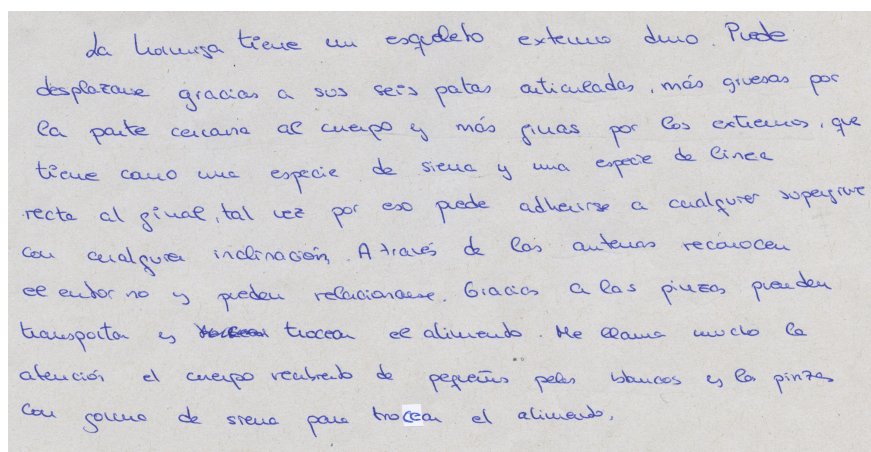 La hormiga tiene un esqueleto externo duro. Puede
desplazarse gracias a sus seis patas articuladas, más gruesas por
la parte cercana al cuerpo y más finas por los extremos, que
tiene como una especie de sierra y una especie de linea
recta al final, tal vez por eso puede adherirse a cualquier superficie
con cualquier inclinación. A través de las antenas reconocen
el entorno y pueden relacionarse. Gracias a las pinzas pueden
transportar y trocear el alimento. Me llama mucho la
atención el cuerpo recubierto de pequeños pelos blancos y la pinzas
con forma de sierra para trocear el alimento.